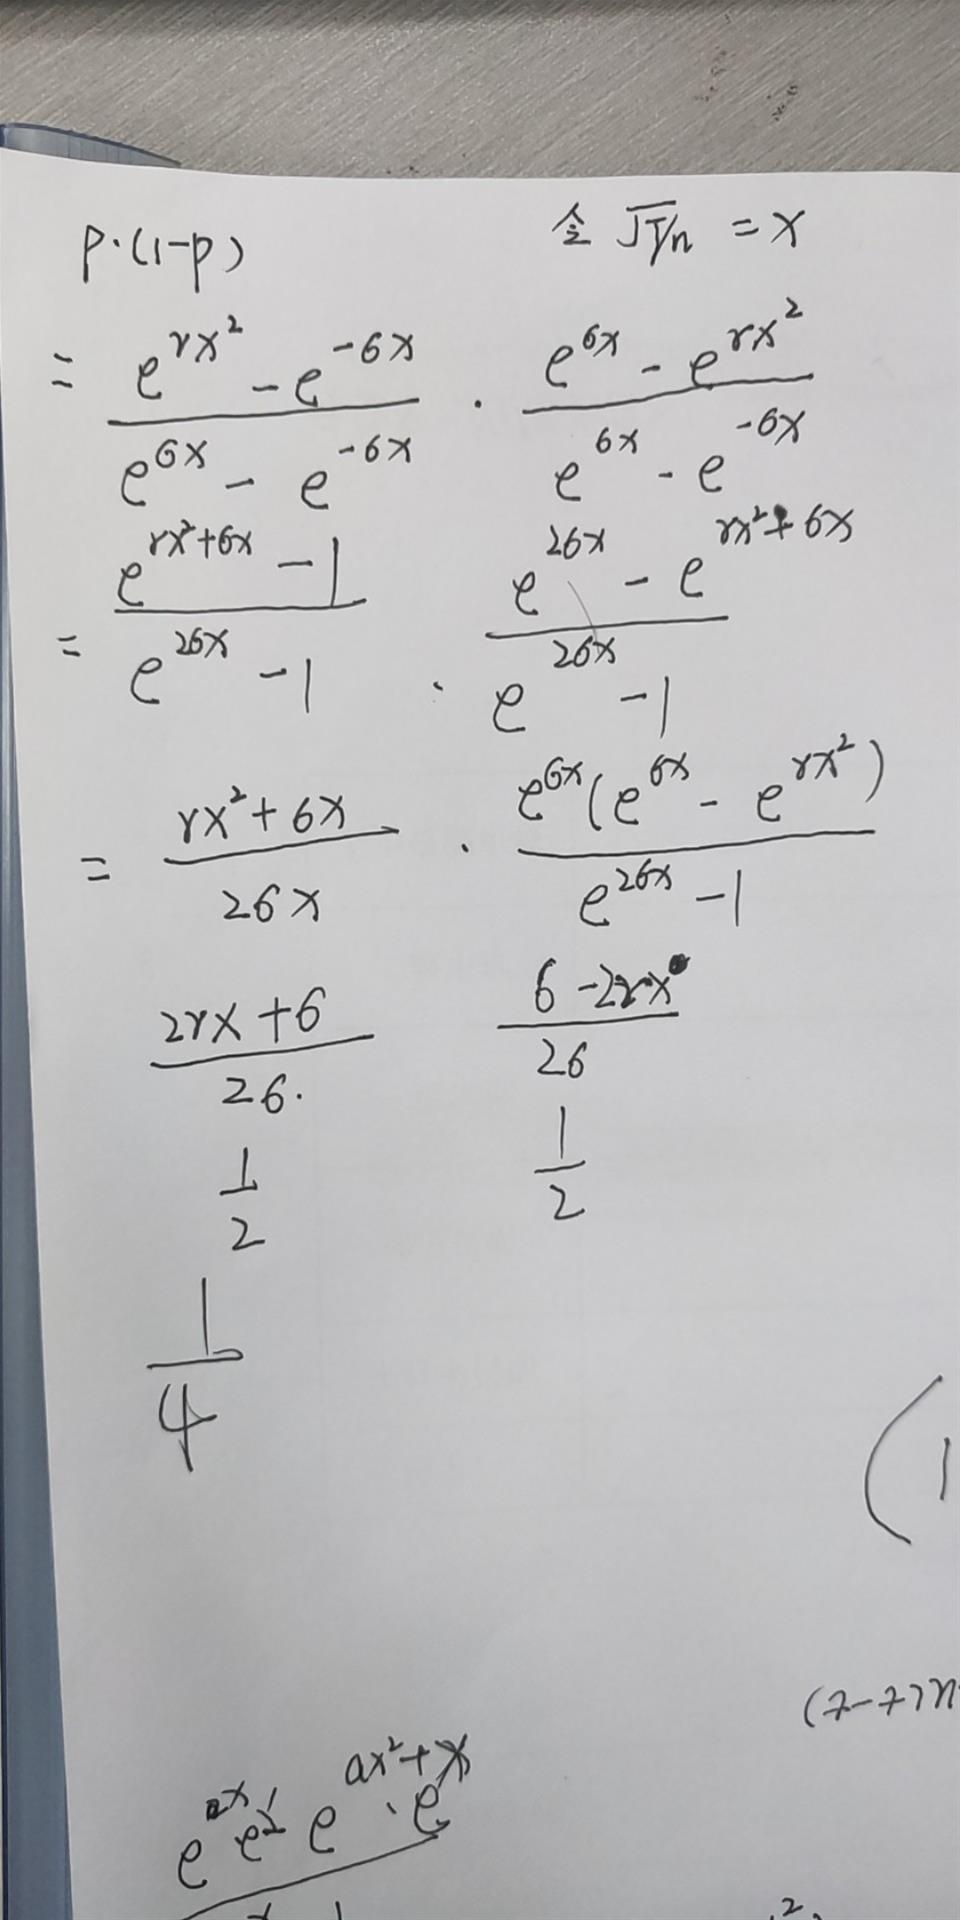 p·(1-p) 令 √T/n = x
= (e^{rx²} - e^{-6x})/(e^{6x} - e^{-6x}) · (e^{6x} - e^{rx²})/(e^{6x} - e^{-6x})
= (e^{rx²+6x} - 1)/(e^{26x} - 1) · (e^{26x} - e^{rx²+6x})/(e^{26x} - 1)
= (rx²+6x)/(26x) · (e^{6x}(e^{6x} - e^{rx²}))/(e^{26x} - 1)
(2rx+6)/(26.) (6-2rx)/(26)
1/2 1/2
1/4
(1
(7-7)n
e e^{ax²+x} · e